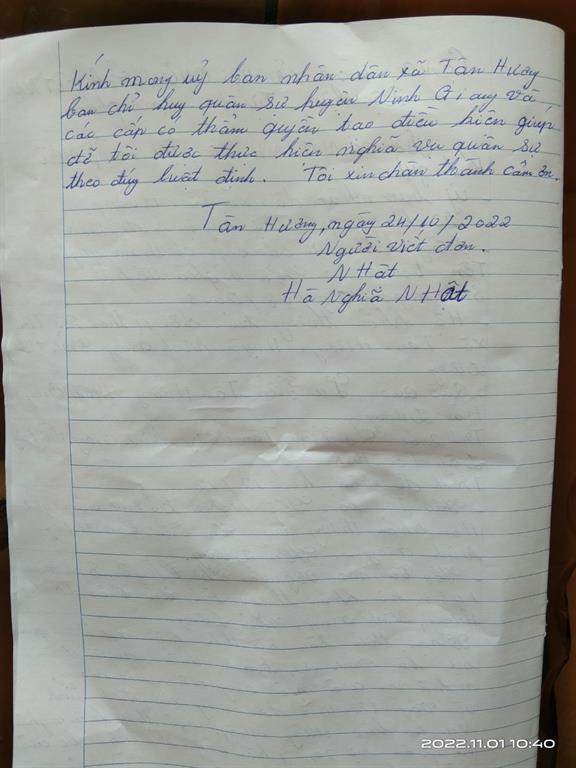 Kính mong uỷ ban nhân dân xã Tân Hương
ban chỉ huy quân sự huyện Ninh Giang và
các cấp có thẩm quyền tạo điều kiện giúp
để tôi được thực hiện nghĩa vụ quân sự
theo đúng luật định. Tôi xin chân thành cảm ơn.
Tân Hương, ngày 24/10/2022
Người viết đơn.
NHất
Hà Nghĩa NHất
2022.11.01 10:40